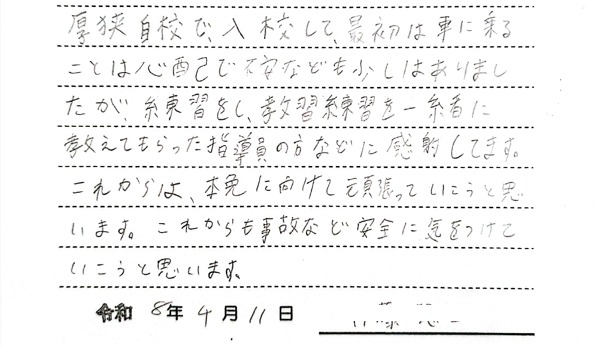 厚狭自校で、入校して、最初は車に乗る
ことは心配で不安なども少しはありまし
たが、練習をし、教習練習を一緒に
教えてもらった指導員の方などに感謝してます。
これからは、本免に向けて頑張っていこうと思
います。これからも事故など安全に気をつけて
いこうと思います。
令和 8年 4月 11日